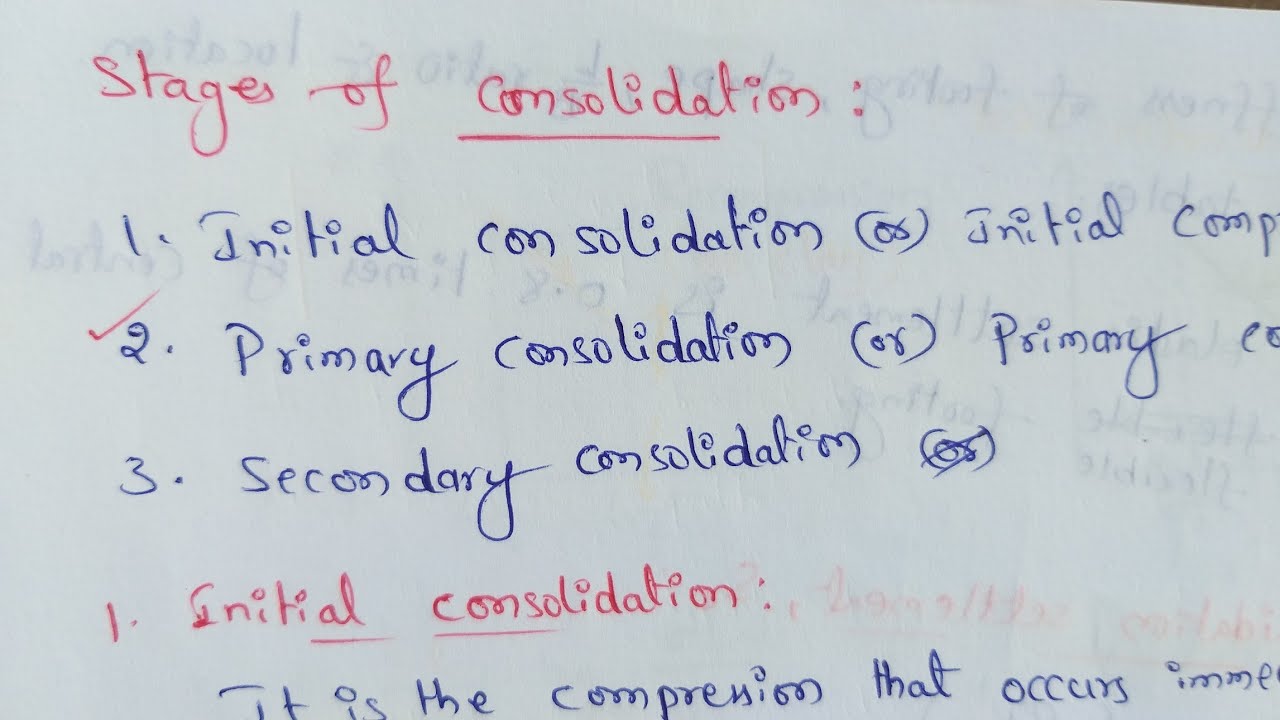 Stages of consolidation:
1. Initial consolidation (or) Initial comp
2. Primary consolidation (or) Primary co
3. Secondary consolidation (or)
1. Initial consolidation:
It is the compression that occurs imme